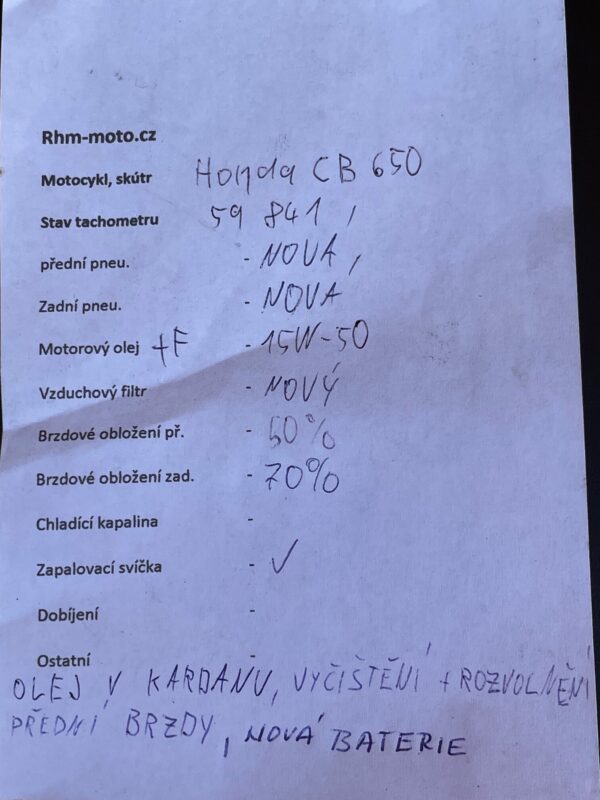 Rhm-moto.cz
Motocykl, skútr Honda CB 650
Stav tachometru 59 841,
přední pneu. - NOVÁ,
Zadní pneu. - NOVÁ
Motorový olej +F - 15W-50
Vzduchový filtr - NOVÝ
Brzdové obložení př. - 50%
Brzdové obložení zad. - 70%
Chladící kapalina -
Zapalovací svíčka - ✓
Dobíjení -
Ostatní -
OLEJ V KARDANU, VYČIŠTĚNÍ + ROZVOLNĚNÍ
PŘEDNÍ BRZDY, NOVÁ BATERIE